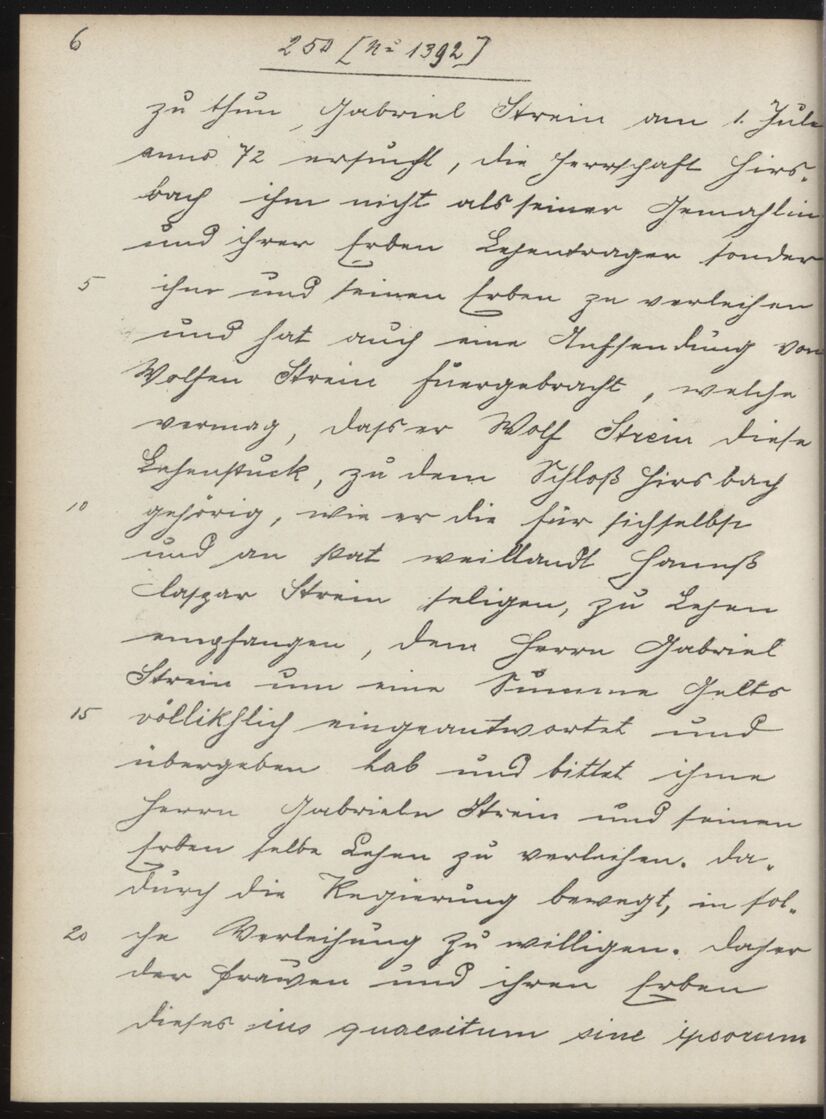 6
250 [No 1392]
zu thun, Gabriel Strein am 1. Jule
anno 72 ersucht, die Herrschaft Hirs-
bach ihm nicht als seiner Gemahlin
und ihrer Erben Lehentrager sonder
5 ihme und seinen Erben zu verleihen
und hat auch eine Aufsendung von
Wolfen Strein fuergebracht, welche
vermag, dass er Wolf Strein diese
Lehenstuck, zu dem Schloß Hirsbach
10 gehörig, wie er die für sichselbst
und an stat weillandt Hannß
Caspar Strein seligen, zu Lehen
empfangen, dem Herrn Gabriel
Strein um eine Summe Gelts
15 völlikhlich eingeantwortet und
übergeben hab und bittet ihme
Herrn Gabrieln Strein und seinen
Erben selbe Lehen zu verleihen. Da-
durch die Regierung bewegt, in sol-
20 che Verleihung zu willigen. Daher
der frawen und ihren Erben
dieses ius quaesitum sine ipsorum